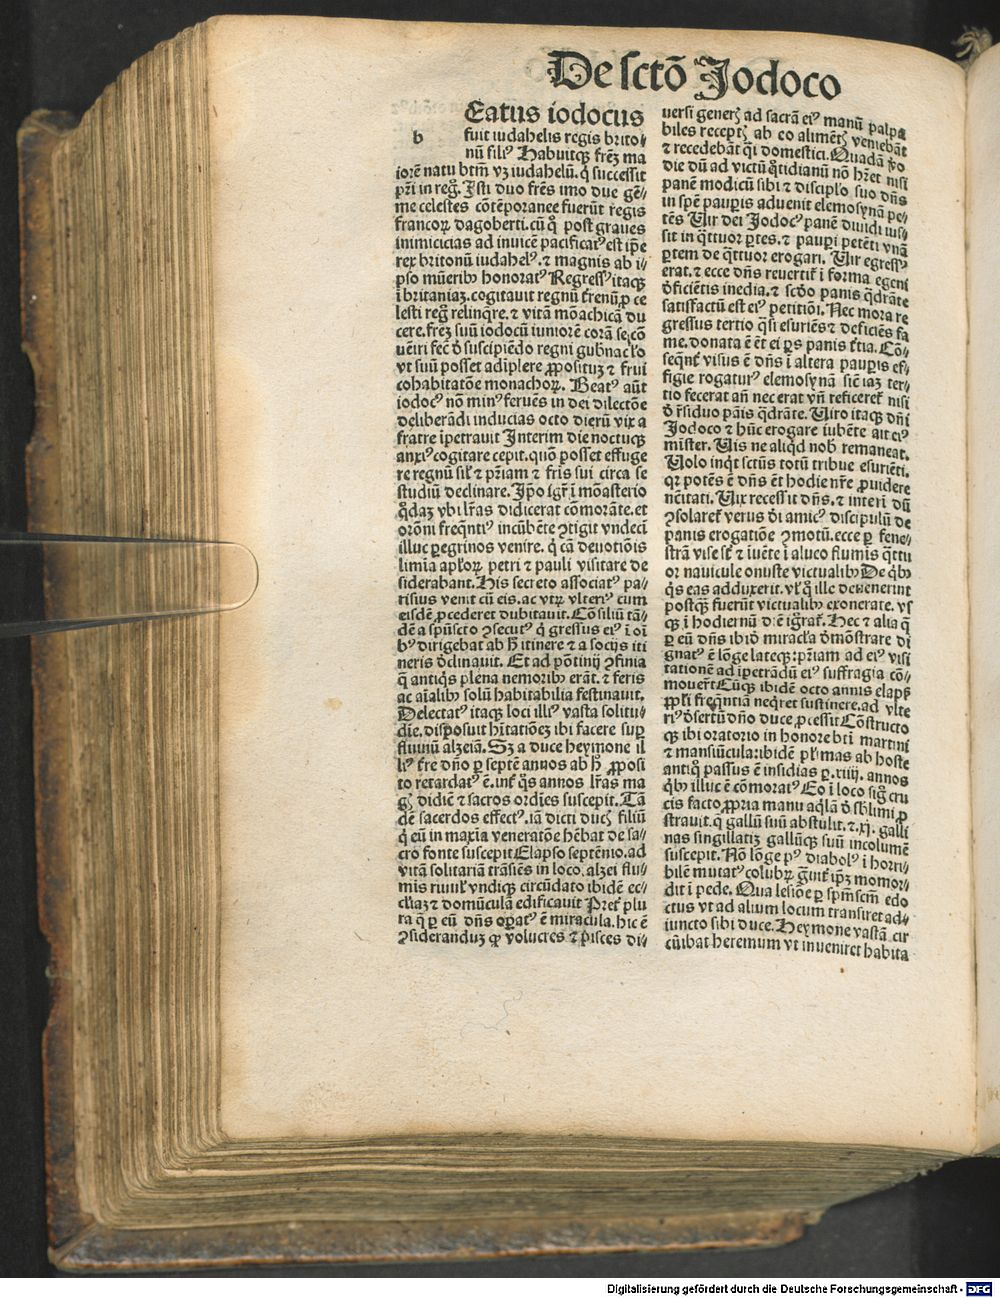 De sctō Jodoco
b Eatus iodocus
fuit iudahelis regis brito⸗
nū filiꝰ Habuitqꝫ frēꝫ ma
iorē natu btm̄ vꝫ iudahelū. q̇ successit
pr̄i in reg̊. Isti duo frēs imo due gē⸗
me celestes cōtēporanee fuerūt regis
francoꝝ dagoberti. cū q̊ post graues
inimicicias ad inuicē pacificatꝰ est ip̄e
rex britonū iudahelꝰ. ⁊ magnis ab i⸗
pso mūeribꝰ honoratꝰ Regressꝰ itaqꝫ
i britaniaꝫ. cogitauit regnū t̄renū ꝓ ce
lesti reg̊ relinq̄re. ⁊ vitā mōachicā du
cere. frēꝫ suū iodocū iuniorē corā se cō
uēiri fec̄ ꝺ̄ suscipiēdo regni gub̄nacło
vt suū posset adīplere ꝓpositūꝫ ⁊ frui
cohabitatōe monachoꝝ. Beatꝰ aūt
iodocꝰ nō minꝰ feruēs in dei dilectōe
deliberādi inducias octo dierū vix a
fratre īpetrauit Interim die noctuqꝫ
anxiꝰ cogitare cepit. quō posset effuge
re regnū sil̄r ⁊ pr̄iam ⁊ fr̄is sui circa se
studiū declinare. Ip̄o igr̄ i mōasterio
q̊daꝫ vbi lr̄as didicerat cōmorāte. et
orōni freq̄ntiꝰ incūbēte ꝯtigit vndeci
illuc pegrinos venire. q̇ cā deuotiōis
limīa apłoꝝ petri ⁊ pauli visitare de
siderabant. His secreto associatꝰ pa⸗
risius venit cū eis. ac vtꝝ vlteriꝰ cum
eisdē ꝓcederet dubitauit. Cōsiliū tā⸗
dē a spūscto ꝯsecutꝰ q̇ gressus eiꝰ i oī
bꝰ dirigebat ab h̄ itinere ⁊ a socijs iti
neris ꝺ̄clinauit. Et ad pōtinij ꝯfinia
q̄ antiq̇s plena nemoribꝰ erāt. ⁊ feris
ac aīalibꝰ solū habitabilia festinauit.
Delectatꝰ itaqꝫ loci illiꝰ vasta solitu⸗
dīe. disposuit hītatiōeꝫ ibi facere sup
fluuiū alzeiā. Sꝫ a duce heymone il
liꝰ t̄re dn̄o ꝑ septē annos ab h̄ ꝓposi
to retardatꝰ ē. int̄ q̊s annos lr̄as ma
gꝭ didic̄ ⁊ sacros ordīes suscepit. Tā
dē sacerdos effectꝰ. iā dicti ducꝭ filiū
q̇ eū in maxīa veneratōe hēbat de sa⸗
cro fonte suscepit Elapso septēnio. ad
vitā solitariā trāsiēs in loco. alzei flu⸗
mis riuul̄ vndiqꝫ circūdato ibidē ec⸗
cłiaꝫ ⁊ domūculā edificauit Pret̄ plu
ra q̄ ꝑ eū dn̄s oꝑatꝰ ē miracula. hic ē
ꝯsiderandūꝫ ꝙ volucres ⁊ pisces di⸗
uersi generꝭ ad sacrā eiꝰ manū palpa
biles receptꝭ ab eo alimētꝭ veniebāt
⁊ recedebāt q̄i domestici. Quadā ꝟo
die dū ad victū q̊tidianū nō hr̄et nisi
panē modicū sibi ⁊ disciplo suo dn̄s
in spē pauꝑis aduenit elemosynā pe⸗
tēs Vir dei Jodocꝰ panē diuidi ius⸗
sit in q̄ttuor ꝑtes. ⁊ pauꝑi petēti vnā
ꝑtem de q̄ttuor erogari. Vir egressꝰ
erat. ⁊ ecce dn̄s reuertit̄ i forma egeni
ꝺ̄ficiētis inedia. ⁊ scd̄o panis q̄drāte
satisfactū est eiꝰ petitiōi. Nec mora re
gressus tertio q̄si esuriēs ⁊ deficiēs fa
me. donata ē ēt ei ꝑs panis t̄tia. Cō⸗
seqn̄t̄ visus ē dn̄s i altera pauꝑis ef⸗
figie rogaturꝰ elemosynā sic̄ iaꝫ ter⸗
tio fecerat an̄ nec erat vn̄ reficeret̄ nisi
ꝺ̄ r̄siduo pāis q̄drāte. Viro itaqꝫ dn̄i
Jodoco ⁊ hūc erogare iubēte ait eiꝰ
mīster. Vis ne aliqd̄ nob̄ remaneat.
Volo inq̇t sctūs totū tribue esuriēti.
qꝛ potēs ē dn̄s ēt hodie nr̄e ꝓuidere
nēitati. Vix recessit dn̄s. ⁊ interi dū
ꝯsolaret̄ verus ꝺ̄i amicꝰ discipulū de
panis erogatiōe ꝯmotū. ecce ꝑ fene⸗
strā vise st̄ ⁊ iuēte i alueo flumis q̄ttu
or nauicule onuste victualibꝰ De q̇bꝰ
q̇s eas adduxerit. vl̄ q̊ illc deuenerint
postqꝫ fuerūt victualibꝰ exonerate. vs
qꝫ i hodiernū diē igrat̄. Hec ⁊ alia q̄
ꝑ eū dn̄s ibid̄ miracła ꝺ̄mōstrare di
gnatꝰ ē lōge lateqꝫ: pr̄iam ad eiꝰ visi
tationē ad ipetrādū eiꝰ suffragia cō⸗
mouer̄t Cūqꝫ ibidē octo annis elapsꝭ
ꝓpł̄i freq̄ntiā neq̄ret sustinere. ad vlte
riꝰ ꝺ̄sertū dn̄o duce ꝓcessit Cōstructo
qꝫ ibi oratorio in honore bti martini
⁊ mansiūcula: ibidē pl̄imas ab hoste
antiq̊ passus ē insidias ꝑ. xiiij. annos
q̇bꝰ illuc ē cōmoratꝰ Eo i loco sig̊ cru
cis facto ꝓpria manu aq̇lā ꝺ̄ sb̄limi ꝓ
strauit. q̄ gallū suū abstulit. ⁊. xj. galli
nas singillatiꝫ gallūqꝫ suū incolumē
suscepit. Nō lōge pꝰ diabolꝰ i horri⸗
bilē mutatꝰ colubꝝ grauit̄ ip̄ꝫ momor⸗
dit i pede. Qua lesiōe ꝑ spm̄scm̄ edo
ctus vt ad alium locum transiret ad⸗
iuncto sibi duce. Heymone vastā cir
cūibat heremum vt inueniret habita
Digitalisierung gefördert durch die Deutsche Forschungsgemeinschaft - DFG